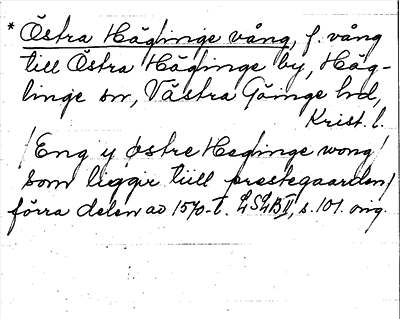 * Östra Häglinge vång, f. vång
till Östra Häglinge by, Häg-
linge sn, Västra Göinge hd,
Krist. l.
/Eng y østre Heglinge wong/
som ligger tiill prestegaarden/
förra delen av 1570-t. LSLB II, s. 101. orig.